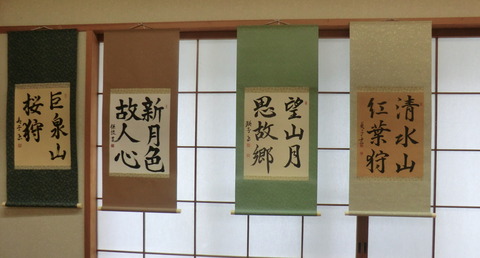 清水山
紅葉狩
望山月
思故郷
新月色
故人心
巨泉山
桜狩